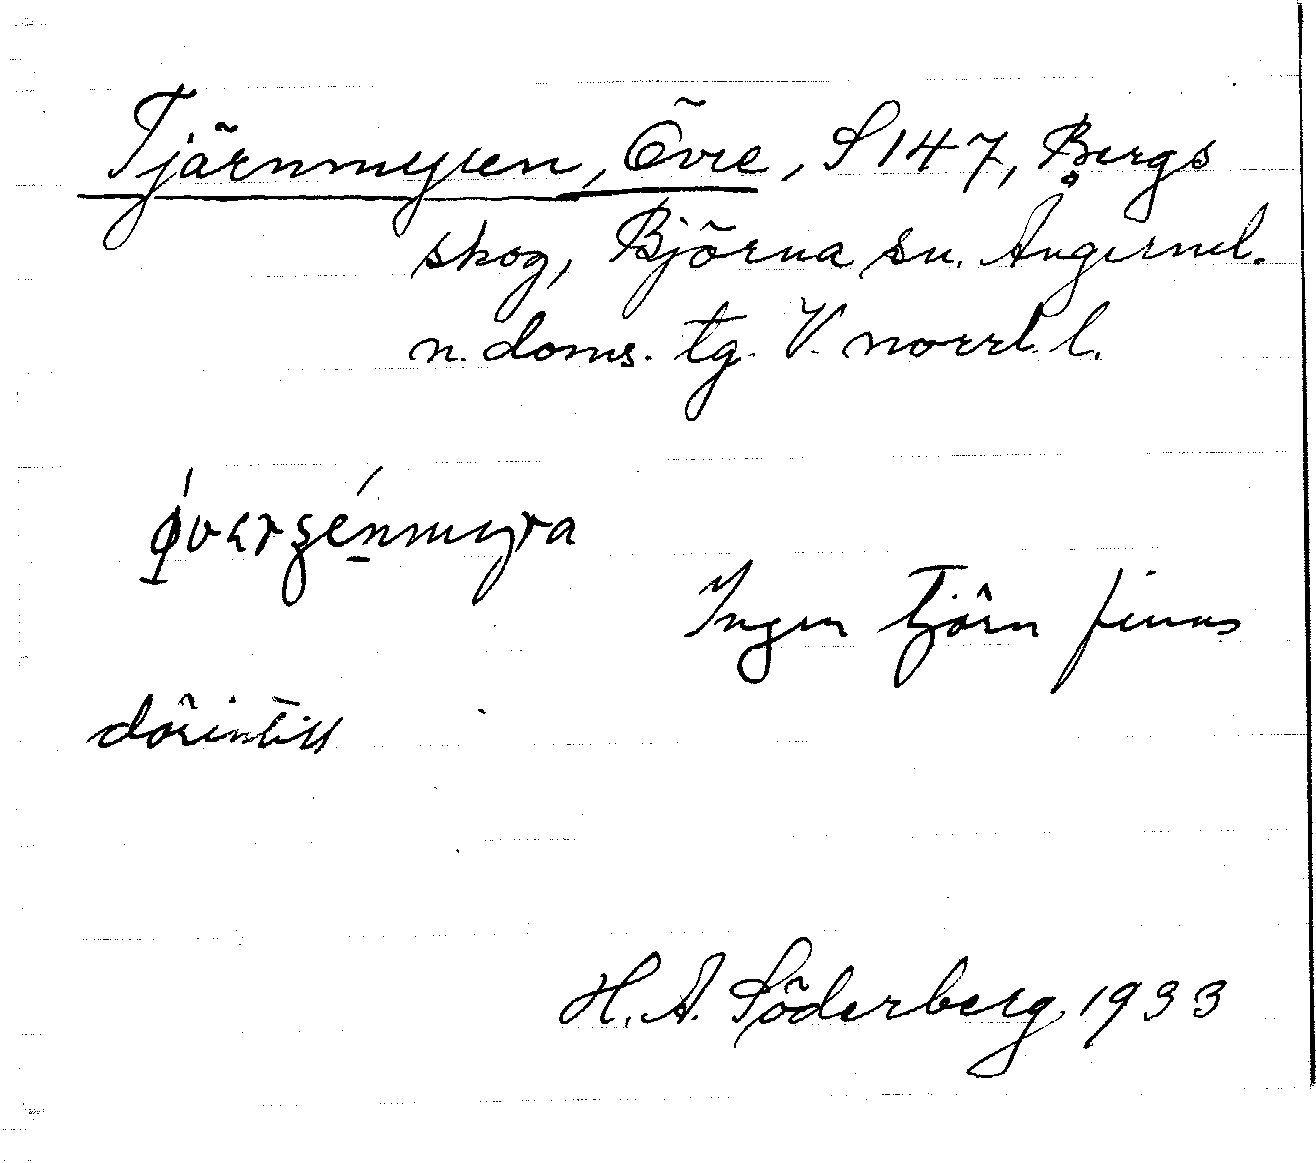 Tjärnmyren, Övre, S 147, Bergs
skog, Björna sn. Ångerml.
n. doms. tg. V. norrl. l.
Ingen tjärn finns
därintill
H. A. Söderberg 1933